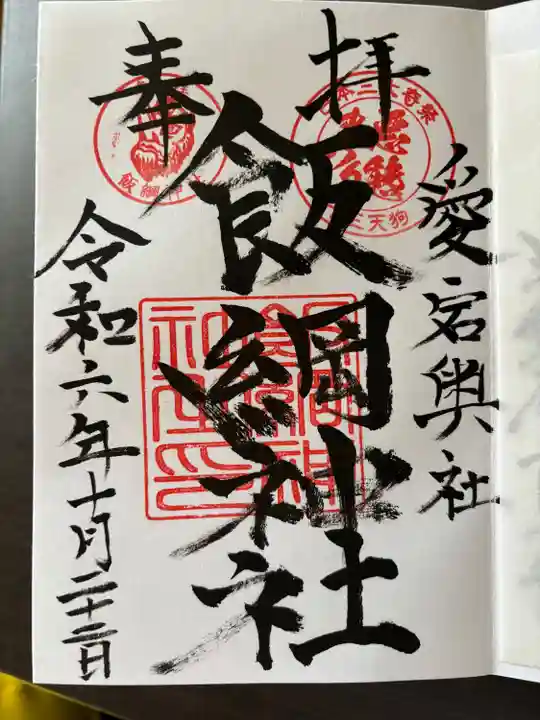 奉拝
愛宕奥社
飯綱神社
令和六年十月二十二日
日本三大
天狗
飯綱神社
飯綱神社之印